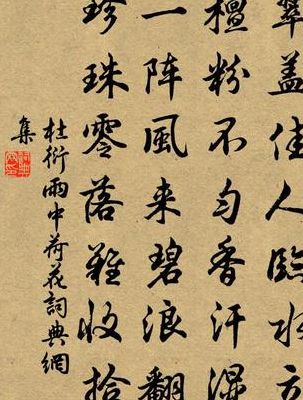 翠盖佳人臨水立
檀粉不匀香汗濕
一阵風来碧浪翻
珍珠零落難收拾
杜衍雨中荷花詞典網
集